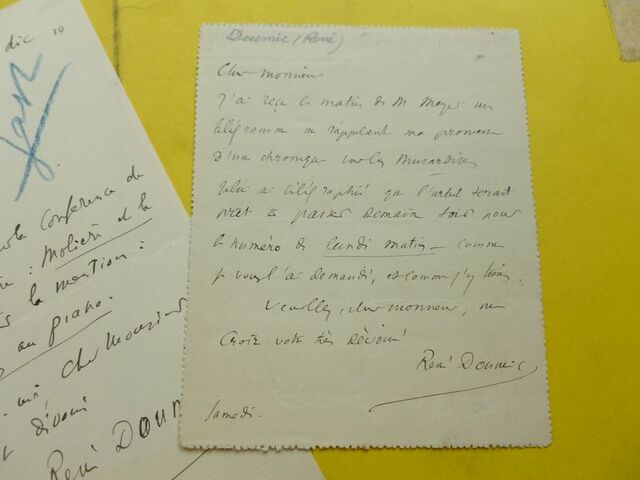 dic
Conférence de
Molière et la
la mention :
au piano.
Cher Monsieur
dévoué
René DOUM
Doumic (René)
Cher monsieur
J'ai reçu ce matin de M. Meyer un
télégramme me rappelant ma promesse
d'une chronique sur les Musardises
Je lui ai télégraphié que l'article serait
prêt à passer demain soir pour
le numéro de lundi matin – comme
je vous l'ai demandé, et comme j'y tiens.
Veuillez, cher monsieur, me
croire votre très dévoué
René Doumic
Samedi.